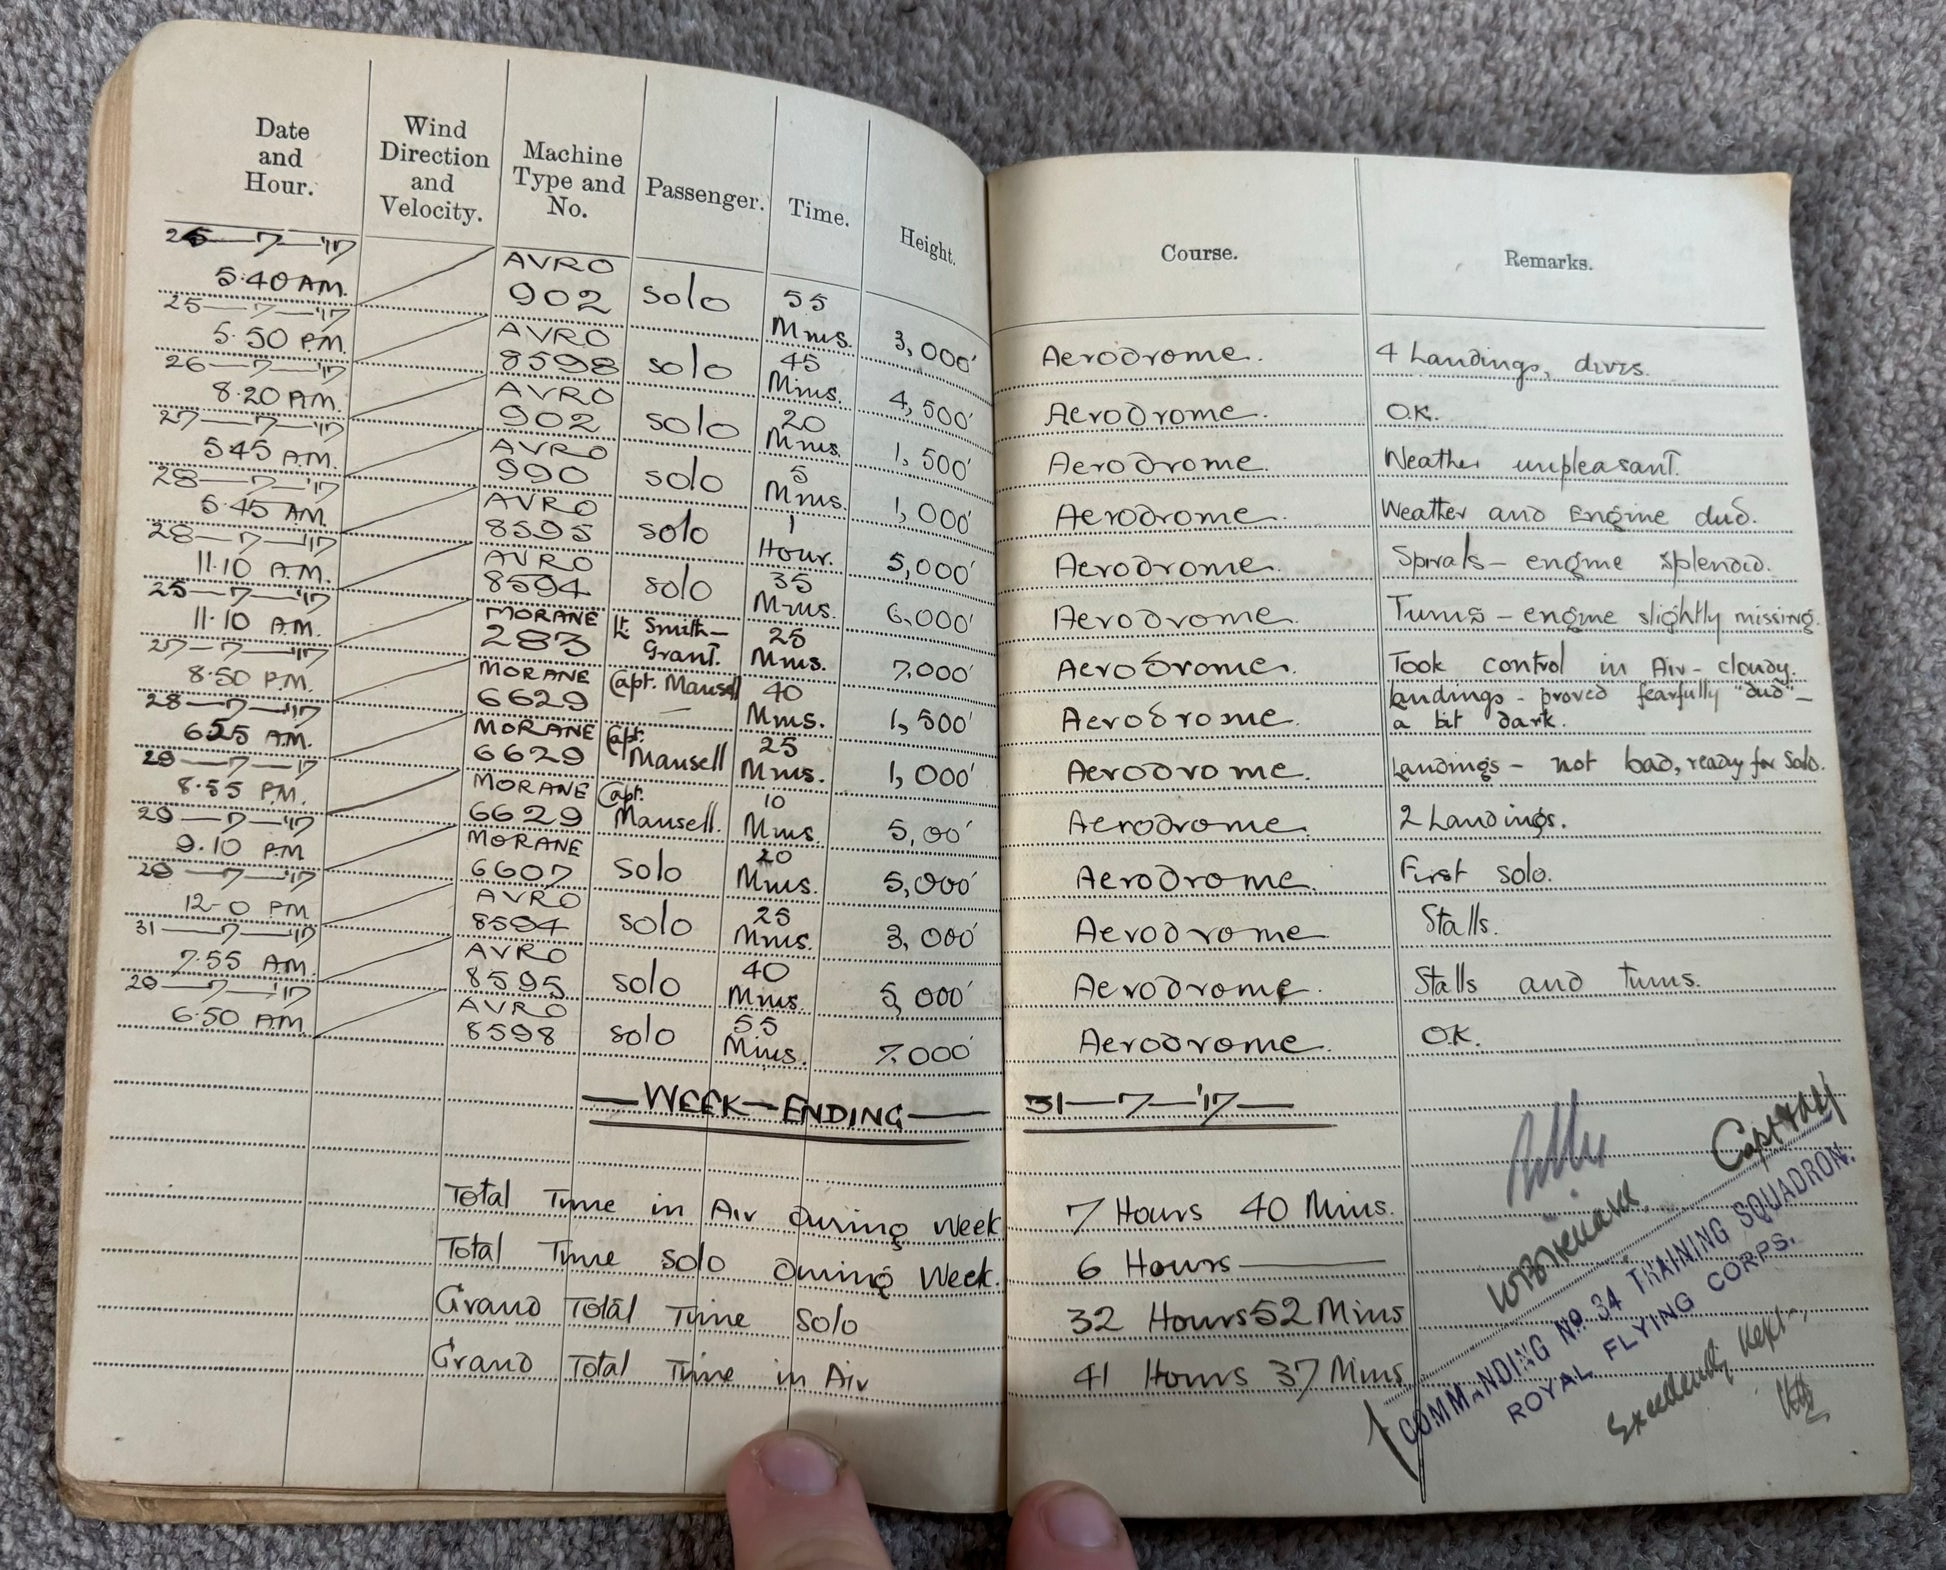 Date and Hour. Wind Direction and Velocity. Machine Type and No. Passenger. Time. Height. Course. Remarks.
25—7—'17 AVRO
5.40 AM. 902 solo 55 Mins. 3,000' Aerodrome. 4 Landings, dives.
25—7—'17 AVRO
5.50 P.M. 8598 solo 45 Mins. 4,500' Aerodrome. O.K.
26—7—'17 AVRO
8.20 A.M. 902 solo 20 Mins. 1,500' Aerodrome. Weather unpleasant.
27—7—'17 AVRO
5.45 A.M. 990 solo 5 Mins. 1,000' Aerodrome. Weather and Engine dud.
28—7—'17 AVRO
5.45 AM. 8595 solo 1 Hour. 5,000' Aerodrome. Spirals – engine splendid.
28—7—'17 AVRO
11.10 A.M. 8594 solo 35 Mins. 6,000' Aerodrome. Turns – engine slightly missing.
25—7—'17 MORANE
11.10 A.M. 283 Lt. Smith-Grant. 25 Mins. 7,000' Aerodrome. Took control in Air – cloudy.
27—7—'17 MORANE
8.50 P.M. 6629 Capt. Mansell 40 Mins. 1,500' Aerodrome. Landings – proved fearfully "dud" – a bit dark.
28—7—'17 MORANE
6.25 A.M. 6629 Capt. Mansell 25 Mins. 1,000' Aerodrome. Landings – not bad, ready for solo.
29—7—'17 MORANE
8.55 P.M. 6629 Capt. Mansell. 10 Mins. 5,00' Aerodrome. 2 Landings.
29—7—'17 MORANE
9.10 P.M 6607 solo 20 Mins. 5,000' Aerodrome. First solo.
29—7—'17 AVRO
12-0 PM 8594 solo 25 Mins. 3,000' Aerodrome. Stalls.
31—7—'17 AVRO
7.55 A.M. 8595 solo 40 Mins 5,000' Aerodrome. Stalls and turns.
29—7—'17 AVRO
6.50 A.M 8598 solo 55 Mins. 7,000' Aerodrome. O.K.
—WEEK—ENDING— 31—7—'17—
Total Time in Air during Week 7 Hours 40 Mins.
Total Time solo during Week. 6 Hours
Grand Total Time solo 32 Hours 52 Mins
Grand Total Time in Air 41 Hours 37 Mins
Capt
COMMANDING No. 34 TRAINING SQUADRON.
ROYAL FLYING CORPS.
Excellently kept